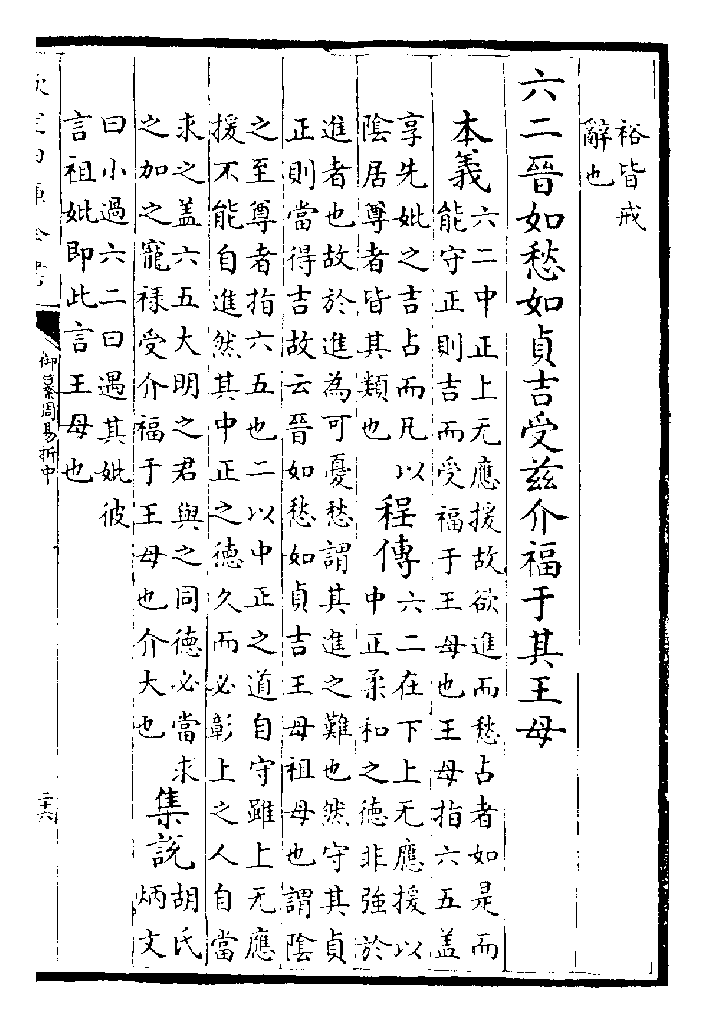 裕皆戒
辭也
六二晉如愁如貞吉受兹介福于其王母
本義
六二中正上无應援故欲進而愁占者如是而
能守正則吉而受福于王母也王母指六五盖
享先妣之吉占而凡以
陰居尊者皆其類也
程傳
六二在下上无應援以
中正柔和之德非強於
進者也故於進為可憂愁謂其進之難也然守其貞
正則當得吉故云晉如愁如貞吉王母祖母也謂陰
之至尊者指六五也二以中正之道自守雖上无應
援不能自進然其中正之德久而必彰上之人自當
求之盖六五大明之君與之同德必當求
之加之寵祿受介福于王母也介大也
集說
胡氏
炳文
曰小過六二曰遇其妣彼
言祖妣即此言王母也
御纂周易折中
二十六